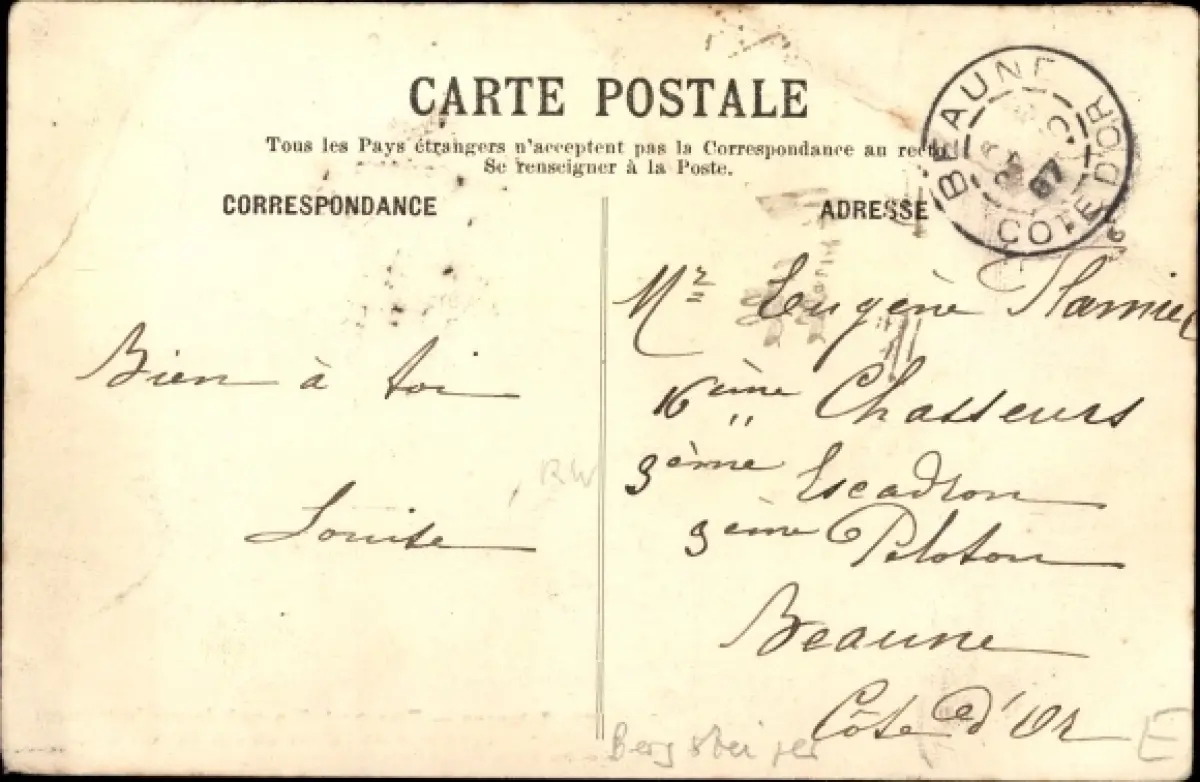 CARTE POSTALE
Tous les Pays étrangers n'acceptent pas la Correspondance au recto
Se renseigner à la Poste.
CORRESPONDANCE
ADRESSE
BEAUNE
07
COTE D'OR
Bien à toi
Louise
Mr Eugène
16ème Chasseurs
3ème Escadron
3ème Peloton
Beaune
Côte d'Or
RW
E